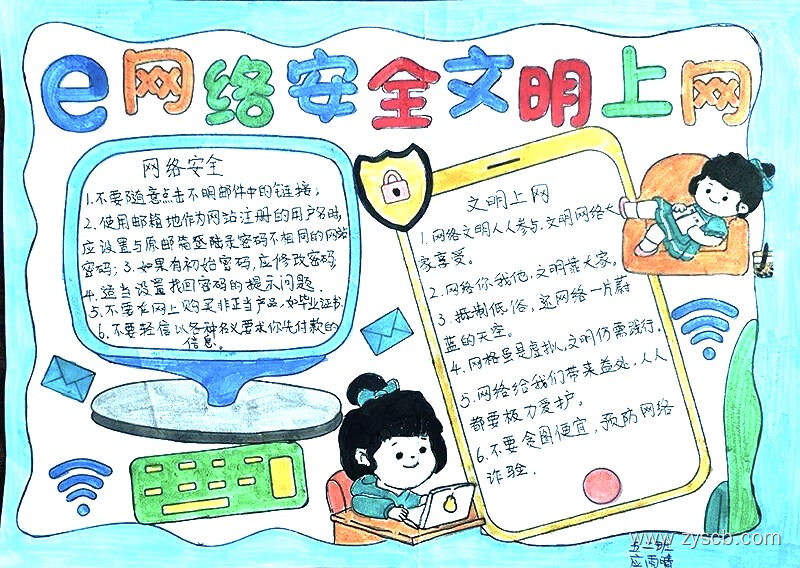 e网络安全文明上网
网络安全
1.不要随意点击不明邮件中的链接；
2.使用邮箱地作为网站注册的用户名时，
应设置与原邮箱登陆录密码不相同的网站
密码；3.如果有初始密码，应修改密码
4.适当设置找回密码的提示问题.
5.不要在网上购买非正当产品，如毕业证书
6.不要轻信以各种名义要求你先付款的
信息。
文明上网
1.网络文明人人参与，文明网络大
家享受。
2.网络你我他，文明靠大家。
3.抵制低俗，还网络一片蔚
蓝的天空。
4.网格虽是虚拟，文明仍需践行。
5.网络给我们带来益处，人人
都要极力爱护。
6.不要贪图便宜，预防网络
诈骗.
www.zyscb.com
五二班
应雨晴